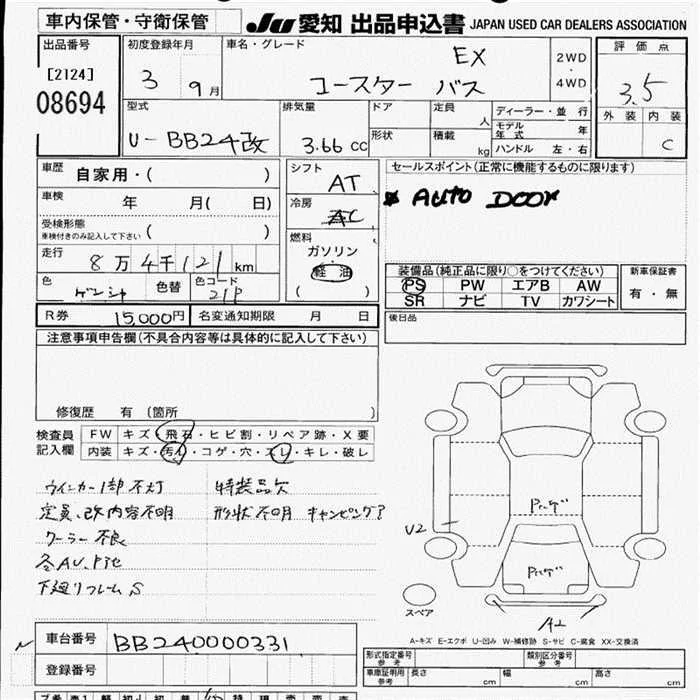 車内保管・守衛保管
JU 愛知 出品申込書 JAPAN USED CAR DEALERS ASSOCIATION
出品番号
[2124]
08694
初度登録年月
3 9月
車名・グレード
EX
コースター バス
2WD
・
4WD
評価点
3.5
外装 内装
C
型式
U-BB24改
排気量
3.66 cc
ドア
形状
定員 人
積載 kg
ディーラー・並行
モデル年式 年
ハンドル 左・右
車歴 自家用・( )
車検 年 月( 日)
受検形態
車検付きのみ記入して下さい ( )
走行
8万4千121 km
色 ゲンシャ
色替
色コード
21P
シフト
AT
冷房
AC
燃料
ガソリン
軽油
( )
セールスポイント(正常に機能するものに限ります)
AUTO DOOR
装備品(純正品に限り○をつけてください)
PS PW エアB AW
SR ナビ TV カワシート
新車保証書
有・無
後日品
R券 15,000円
名変通知期限 月 日
注意事項申告欄(不具合内容等は具体的に記入して下さい)
修復歴 有 (箇所 )
検査員
記入欄
FW キズ・飛石・ヒビ割・リペア跡・X要
内装 キズ・汚れ・コゲ・穴・スレ・キレ・破レ
ウインカー1部不灯 特装品欠
定員、改内容不明 形状不明 キャンピング?
クーラー不良
下廻リフレームS
U2
A2
スペア
A-キズ E-エクボ U-凹み W-補修跡 S-サビ C-腐食 XX-交換済
車台番号 BB240000331
登録番号
形式指定番号
参考
類別区分番号
参考
車庫証明
参考
長さ cm 幅 cm 高さ cm